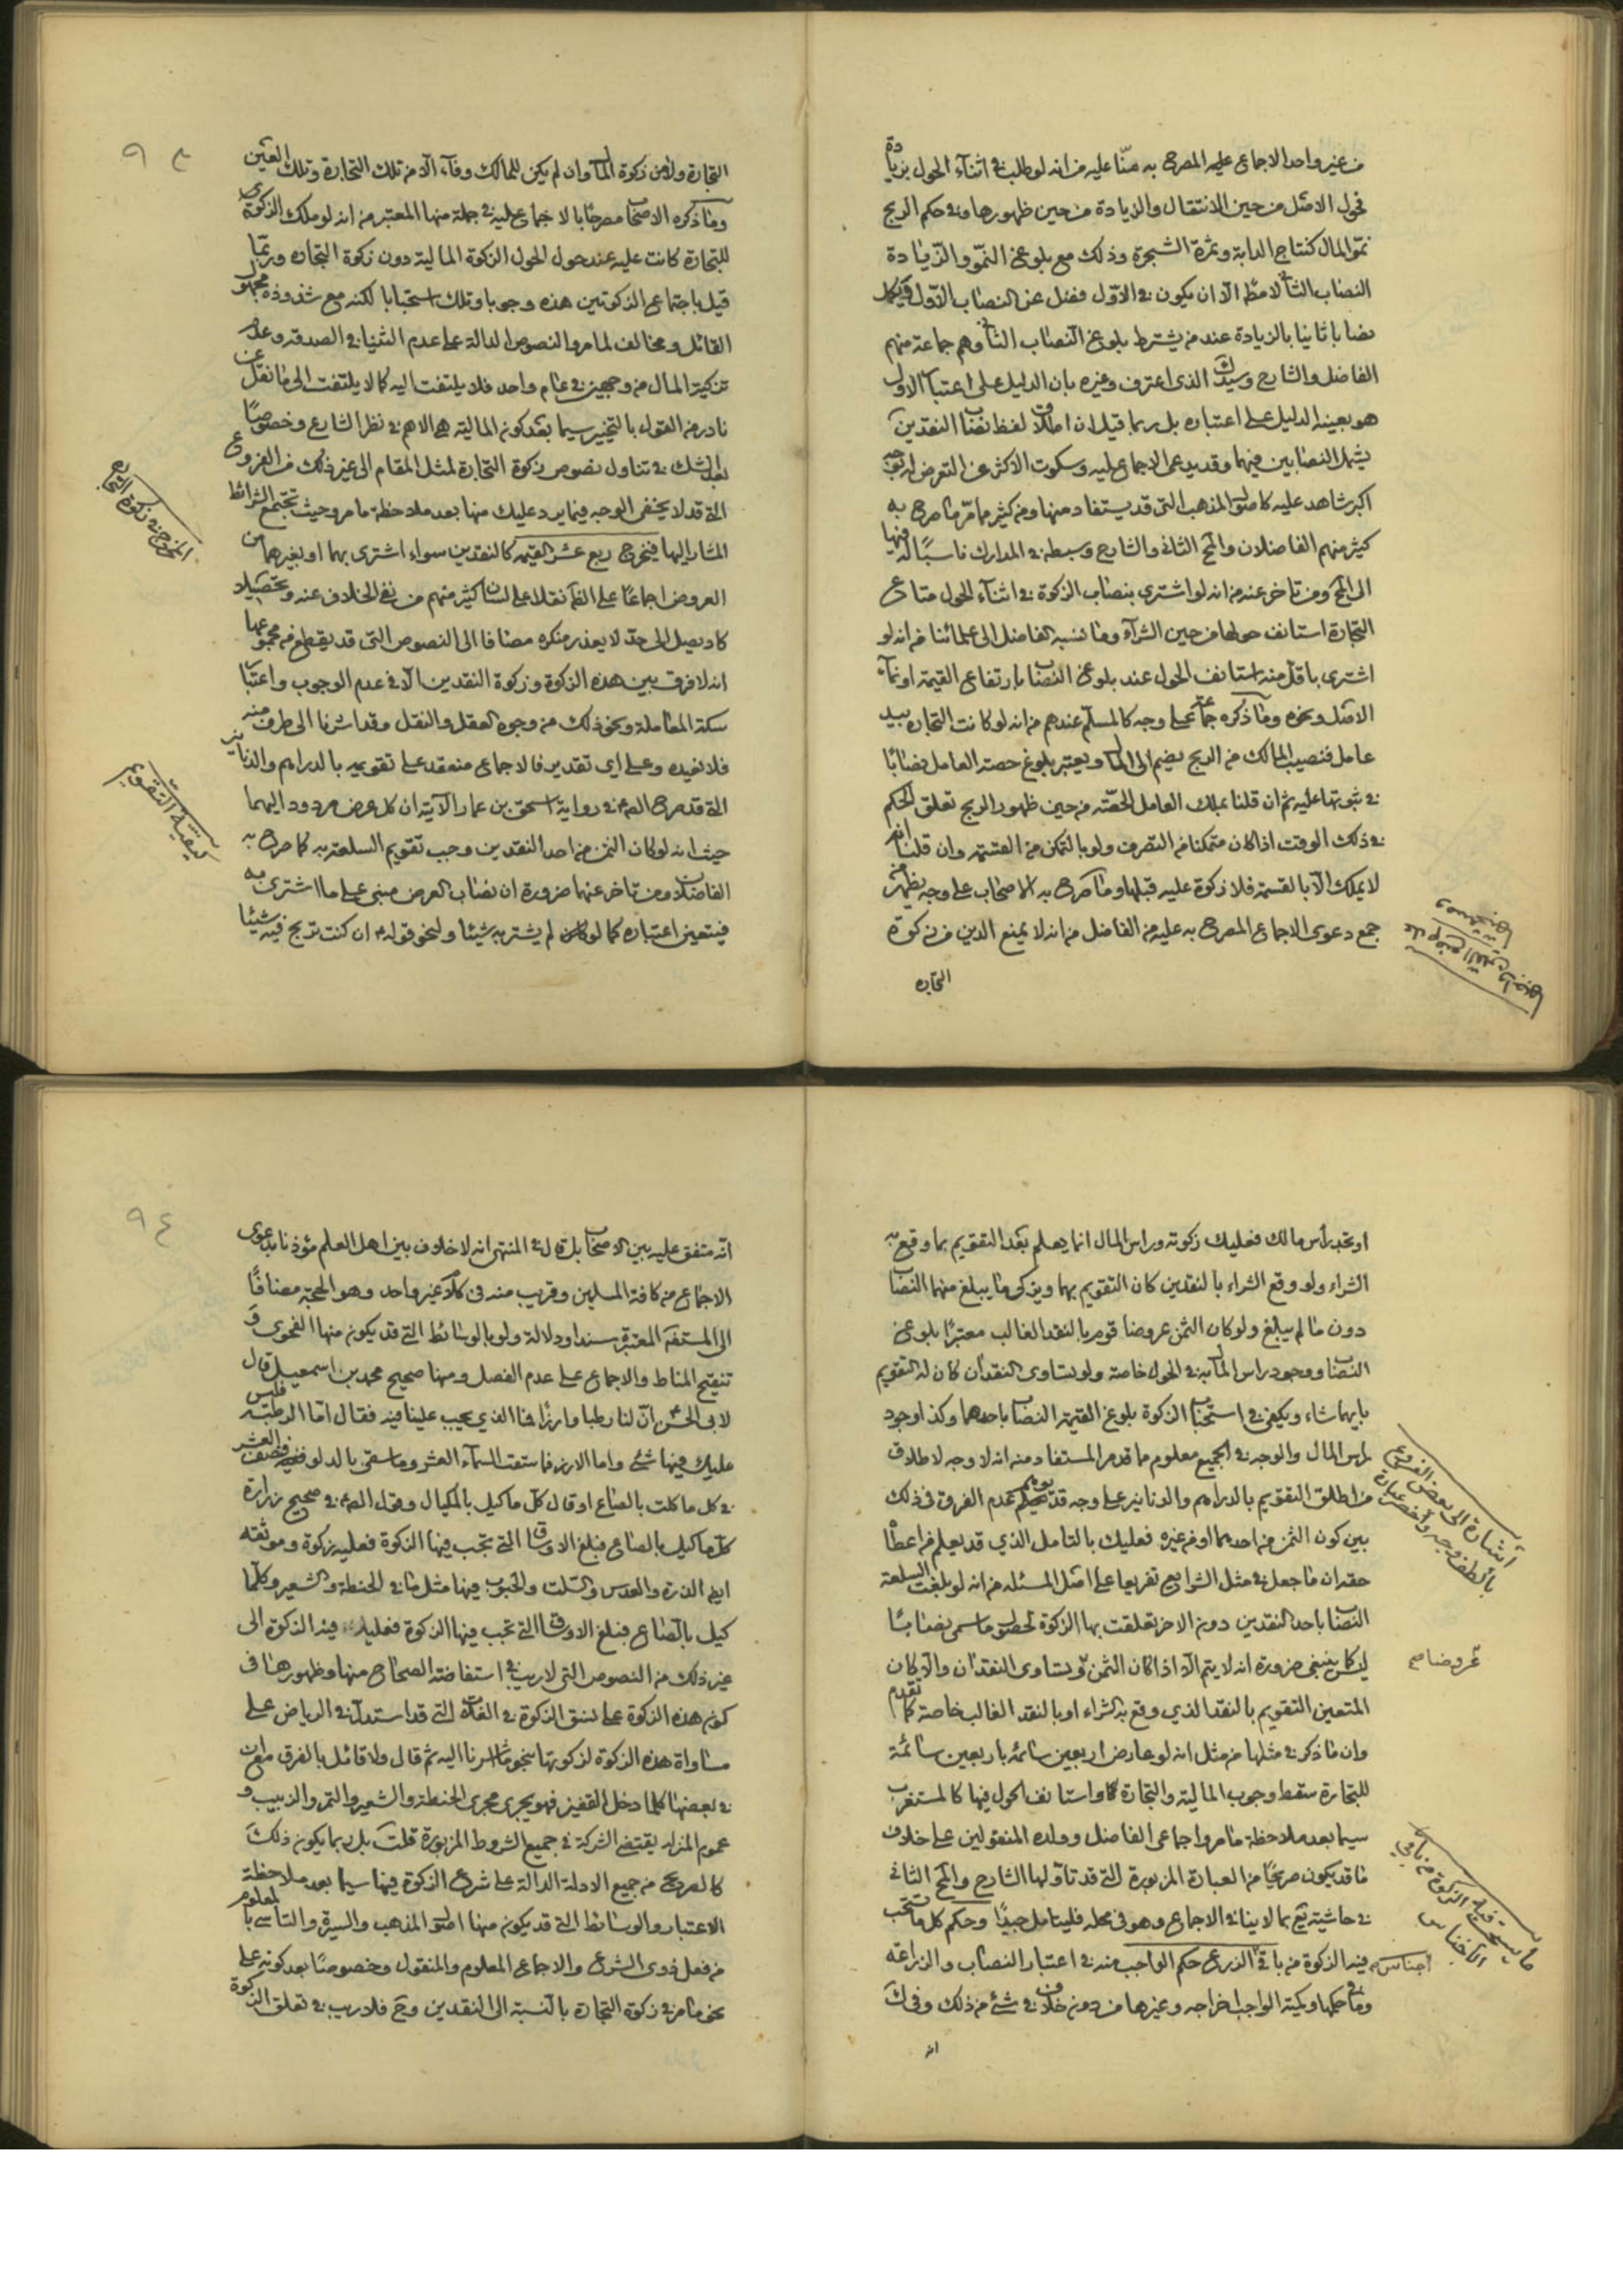 من غير واحد الاجماع عليه المصرح به منا عليه من انه لو طلب في اثناء الحول بزيادة
فحول الاصل من حين الانتقال والزيادة من حين ظهورها وفي حكم الربح
نمو المال كنتاج الدابة وثمرة الشجرة وذلك مع بلوغ النمو والزيادة
النصاب الثاني لا مطلقا الا ان يكون في الاول فضل عن النصاب الاول فيكمل
نصابا ثانيا بالزيادة عند من يشترط بلوغ النصاب الثاني وهم جماعة منهم
الفاضل والشارح وسيد ك الذي اعترف وغيره بان الدليل على اعتبار الاول
هو بعينه الدليل على اعتباره بل ربما قيل ان اطلاق لفظ نصاب النقدين
يشمل النصابين فيهما وقد يدعى الاجماع عليه وسكوت الاكثر عن التعرض له توجه
اكبر شاهد عليه كاصول المذهب التي قد يستفاد منها ومن كثير مما مر ما صرح به
كثير منهم الفاضلان والمحقق الثاني والشارح وسبطه في المدارك ناسبا له فيها
الى المحقق ومن تاخر عنه من انه لو اشترى بنصاب الزكوة في اثناء الحول متاع
التجارة استانف حولها من حين الشراء وما نسبه الفاضل الى علمائنا من انه لو
اشترى باقل منه استانف الحول عند بلوغ النصاب بارتفاع القيمة او نماء
الاصل ونحوه وما ذكره جماعة على وجه كالمسلم عندهم من انه لو كانت التجارة بيد
عامل فنصيب المالك من الربح يضم الى المال ويعتبر بلوغ حصة العامل نصابا
في ثبوتها عليه ثم ان قلنا بملك العامل الحصة من حين ظهور الربح تعلق الحكم
في ذلك الوقت اذا كان متمكنا من التصرف ولو بالتمكن من القسمة وان قلنا انه
لا يملك الا بالقسمة فلا زكوة عليه قبلها وما صرح به الاصحاب على وجه يظهر من
جمع دعوى الاجماع المصرح به عليه من الفاضل من انه لا يمنع الدين من زكوة
التجارة
٩٣
التجارة ولا من زكوة المال وان لم يكن للمالك وفاء الا من تلك التجارة وتلك العين
وما ذكره الاصحاب مصرحا بالاجماع عليه في جملة منها المعتبر من انه لو ملك الزكوي
للتجارة كانت عليه عند حول الحول الزكوة المالية دون زكوة التجارة وربما
قيل باجتماع الزكوتين هذه وجوبا وتلك استحبابا لكنه مع شذوذه مجهول
القائل ومخالف لما مر والنصوص الدالة على عدم الثنيا في الصدقة وعدم
تزكية المال من وجهين في عام واحد فلا يلتفت اليه كما لا يلتفت الى ما نقل عن
نادر من القول بالتخيير سيما بعد كون المالية هي الاهم في نظر الشارع وخصوصا
بعد الشك في تناول نصوص زكوة التجارة لمثل المقام الى غير ذلك من الفروع
التي قد لا يخفى الوجه فيما يرد عليك منها بعد ملاحظة ما مر وحيث تجتمع الشرائط
المشار اليها فيخرج ربع عشر القيمة كالنقدين سواء اشترى بهما او بغيرهما من
العروض اجماعا على الظاهر نقلا على لسان كثير منهم من نفي الخلاف عنه وتحصيلا
كاد يصل الى حد لا يعذر منكره مضافا الى النصوص التي قد يقطع من مجموعها
انه لا فرق بين هذه الزكوة وزكوة النقدين الا في عدم الوجوب واعتبار
سكة المعاملة ونحو ذلك من وجوه العقل والنقل وقد اشرنا الى طرف منه
فلا نعيده وعلى اي تقدير فالاجماع منعقد على تقويمه بالدراهم والدنانير
التي قد صرح الصه في رواية اسحق بن عمار الآتية ان كل عرض مردود اليهما
حيث انه لو كان الثمن من احد النقدين وجب تقويم السلعة به كما صرح به
الفاضلان ومن تاخر عنهما ضرورة ان نصاب العرض مبني على ما اشترى به
فيتعين اعتباره كما لو كان لم يشتر به شيئا ولنحو قوله ع ان كنت تربح فيه شيئا
المخرج في زكوة التجارة
كيفية التقويم
او تجد رأس مالك فعليك زكوته وراس المال انما يعلم بعد التقويم بما وقع به
الشراء ولو وقع الشراء بالنقدين كان التقويم بهما ويزكى ما يبلغ منهما النصاب
دون ما لم يبلغ ولو كان الثمن عروضا قوم بالنقد الغالب معتبرا بلوغ
النصاب ووجود راس المال به في الحول خاصة ولو تساوى النقدان كان له التقويم
بايهما شاء ويكفي في استحباب الزكوة بلوغ القيمة النصاب باحدهما وكذا وجود
راس المال والوجه في الجميع معلوم مما قدم المستفاد منه انه لا وجه لاطلاق
من اطلق التقويم بالدراهم والدنانير على وجه قد يوهم عدم الفرق في ذلك
بين كون الثمن من احدهما او من غيره فعليك بالتامل الذي قد يعلم من اعطاء
حقه ان ما جعل في مثل الشرايع تفريعا على اصل المسئلة من انه لو بلغت السلعة
النصاب باحد النقدين دون الاخر تعلقت بها الزكوة لحصول ما سمي نصابا
ليس كما ينبغي ضرورة انه لا يتم الا اذا كان الثمن وتساوى النقدان والا كان
عروضا صح
المتعين التقويم بالنقد الذي وقع به الشراء او بالنقد الغالب خاصة كما تقدم
وان ما ذكر في مثلها من مثل انه لو عارض اربعين سائمة باربعين سائمة
للتجارة سقط وجوب المالية والتجارة كما واستانف الحول فيها كالمستغرب
سيما بعد ملاحظة ما مر واجماعي الفاضل وولده المنقولين على خلاف
ما قد يكون صريحا من العبارة المزبورة التي قد تاولها الشارح والمحقق الثاني
في حاشية يع بما لا ينافي الاجماع وهو في محله فليتامل جيدا وحكم كل ما تستحب
فيه الزكوة من باقي اجناس الزرع حكم الواجب منه في اعتبار النصاب والزراعة
وما في حكمها وكمية الواجب اخراجه وغيرها من دون خلاف في شئ من ذلك وفي ك
انه
اشارة الى بعض الفروع
ما يستحب فيه الزكوة من باقي الاجناس
٩٤
انه متفق عليه بين الاصحاب بل قال في المنتهى انه لا خلاف بين اهل العلم مؤذنا بدعوى
الاجماع من كافة المسلمين وقريب منه في كلام غير واحد وهو الحجة مضافا
الى المستفيضة المعتبرة سندا ودلالة ولو بالوسائط التي قد يكون منها الفحوى و
تنقيح المناط والاجماع على عدم الفصل ومنها صحيح محمد بن اسمعيل قال
لابي الحسن ع ان لنا رطبا وارزا فما الذي يجب علينا فيه فقال اما الرطبة فليس
عليك فيها شئ واما الارز فما سقت السماء العشر وما سقي بالدلو فنصف العشر
في كل ما كلت بالصاع او قال كل ما كيل بالمكيال وقول الصه في صحيح زرارة
كل ما كيل بالصاع فبلغ الاوساق التي تجب فيها الزكوة فعليه زكوة وموثقه
ايضا الذرة والعدس والسلت والحبوب فيها مثل ما في الحنطة والشعير وكلما
كيل بالصاع فبلغ الاوساق التي تجب فيها الزكوة فعليه فيه الزكوة الى
غير ذلك من النصوص التي لا ريب في استفاضة الصحاح منها وظهورها في
كون هذه الزكوة على نسق الزكوة في الغلات التي قد استدل في الرياض على
مساواة هذه الزكوة لزكوتها بنحو ما اشرنا اليه ثم قال ولا قائل بالفرق مع ان
في بعضها كلما دخل القفيز فهو يجري مجرى الحنطة والشعير والتمر والزبيب و
عموم المنزلة يقتضي الشركة في جميع الشروط المزبورة قلت بل ربما يكون ذلك
كالصريح من جميع الادلة الدالة على شرع الزكوة فيها سيما بعد ملاحظة
الاعتبار والوسائط التي قد يكون منها اصول المذهب والسيرة والتأسي بالمعلوم
من فعل ذوي الشرع والاجماع المعلوم والمنقول وخصوصا بعد كونه على
نحو ما مر في زكوة التجارة بالنسبة الى النقدين وح فلا ريب في تعلق الزكوة